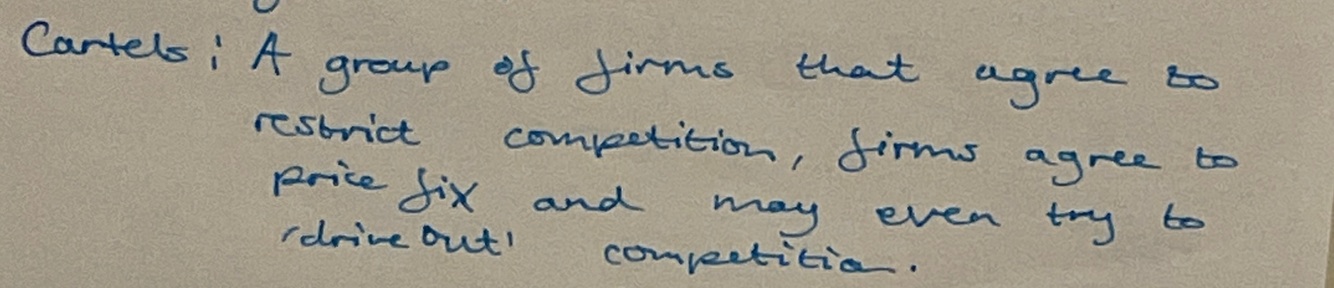 Cartels: A group of firms that agree to
restrict competition, firms agree to
price fix and may even try to
'drive out' competition.